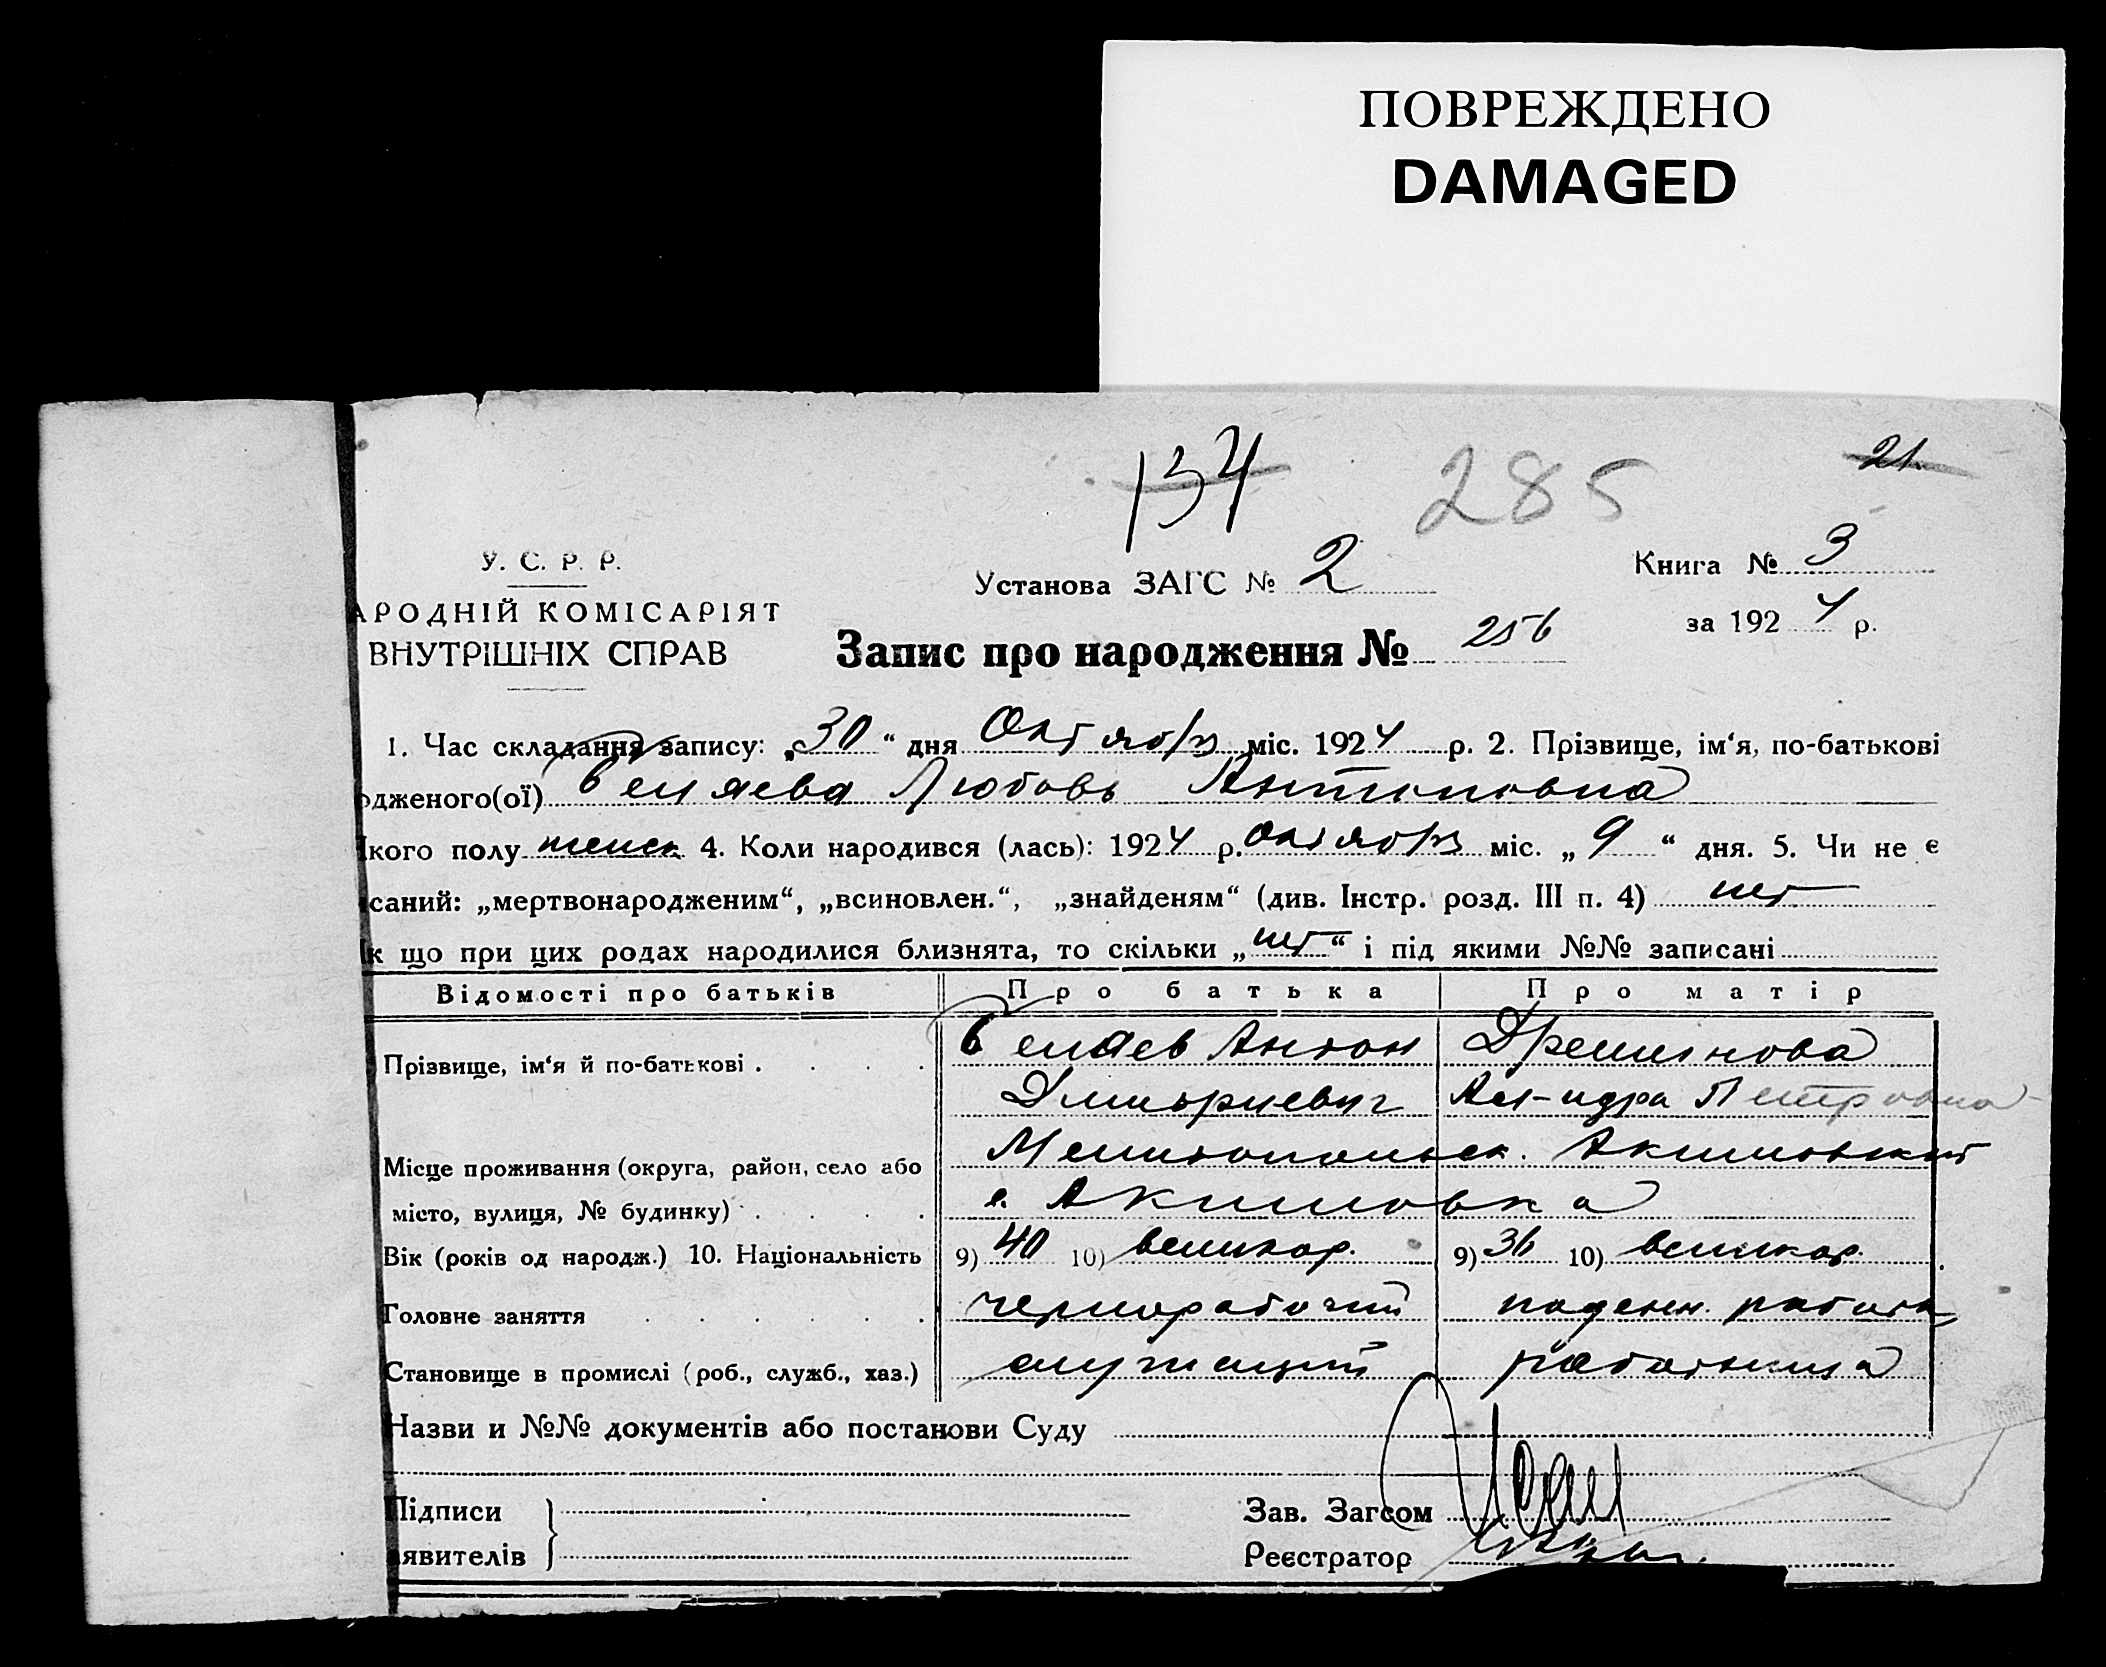 ПОВРЕЖДЕНО
DAMAGED
134 285 21
У. С. Р. Р.
АРОДНІЙ КОМІСАРІЯТ
ВНУТРІШНІХ СПРАВ
Установа ЗАГС № 2
Книга № 3
за 1924 р.
Запис про народження № 256
1. Час складання запису: „30“ дня Октября міс. 1924 р. 2. Прізвище, ім‘я, по-батькові
одженого(ої) Беляева Любовь Антоновна
кого полу женск 4. Коли народився (лась): 1924 р. октября міс. „9“ дня. 5. Чи не є
саний: „мертвонародженим“, „всиновлен.“, „знайденям“ (див. Інстр. розд. III п. 4) нет
к що при цих родах народилися близнята, то скільки „нет“ і під якими №№ записані
Відомості про батьків Про батька Про матір
Прізвище, ім‘я й по-батькові Беляев Антон
Дмитриевич Ал-ндра Петровна
Місце проживання (округа, район, село або Мелитопольск. Акимовский
місто, вулиця, № будинку) с. Акимовка
Вік (років од народж.) 10. Національність 9) 40 10) великор. 9) 36 10) великор.
Головне заняття чернорабочий поденн. работа
Становище в промислі (роб., служб., хаз.) служащий работница
Назви и №№ документів або постанови Суду
Підписи
явителів
Зав. Загсом
Реєстратор